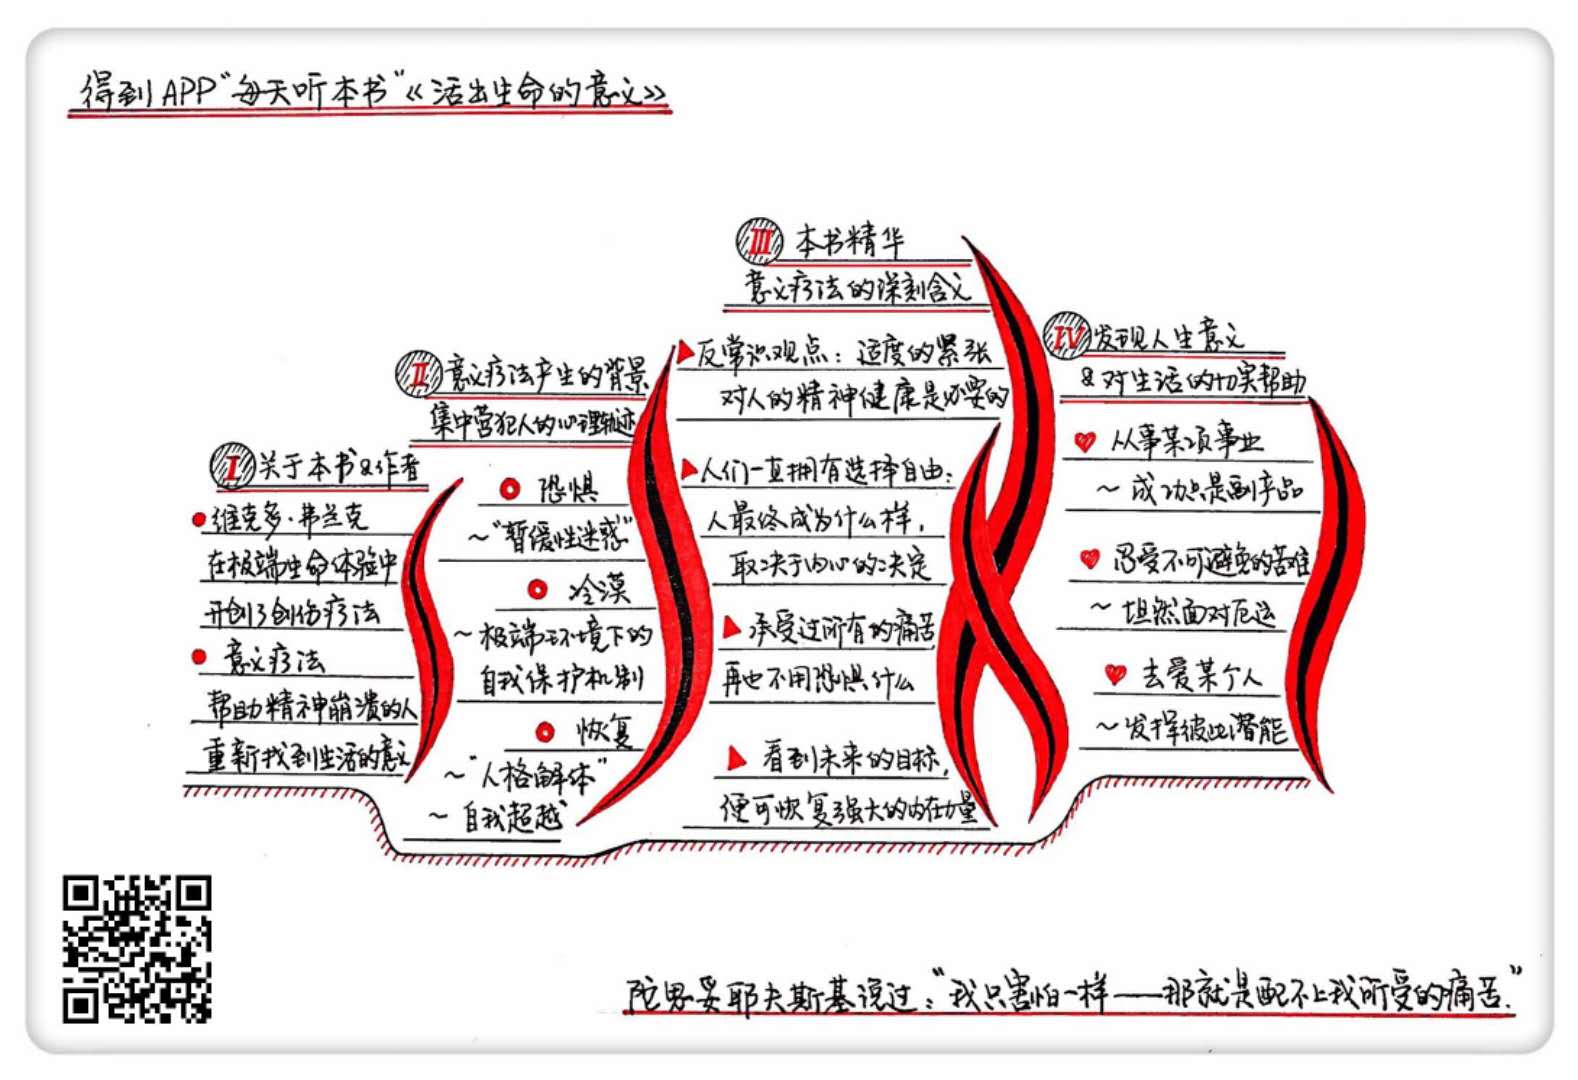 得到APP“每天听本书”《活出生命的意义》
I 关于本书&作者
维克多·弗兰克
在极端生命体验中
开创了创伤疗法
意义疗法
帮助精神崩溃的人
重新找到生活的意义
II 意义疗法产生的背景
集中营犯人的心理轨迹
恐惧
~“暂缓性迷惑”
冷漠
~极端环境下的
自我保护机制
恢复
~“人格解体”
~自我超越
III 本书精华
意义疗法的深刻含义
反常识观点：适度的紧张
对人的精神健康是必要的
人们一直拥有选择自由：
人最终成为什么样，
取决于内心的决定
承受过所有的痛苦，
再也不用恐惧什么
看到未来的目标，
便可恢复强大的内在力量
IV 发现人生意义
&对生活的切实帮助
从事某项事业
~成功只是副产品
忍受不可避免的苦难
~坦然面对厄运
去爱某个人
~发挥彼此潜能
陀思妥耶夫斯基说过：“我只害怕一样——那就是配不上我所受的痛苦.”